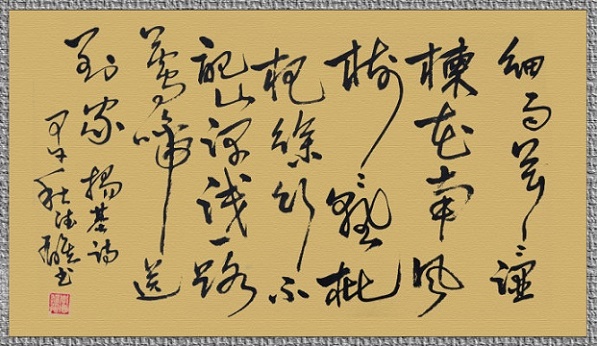 细雨茸茸湿
楝花南风
树树熟枇
杷徐行不
记山深浅一路
莺啼送
到家 杨基诗
甲午秋
书